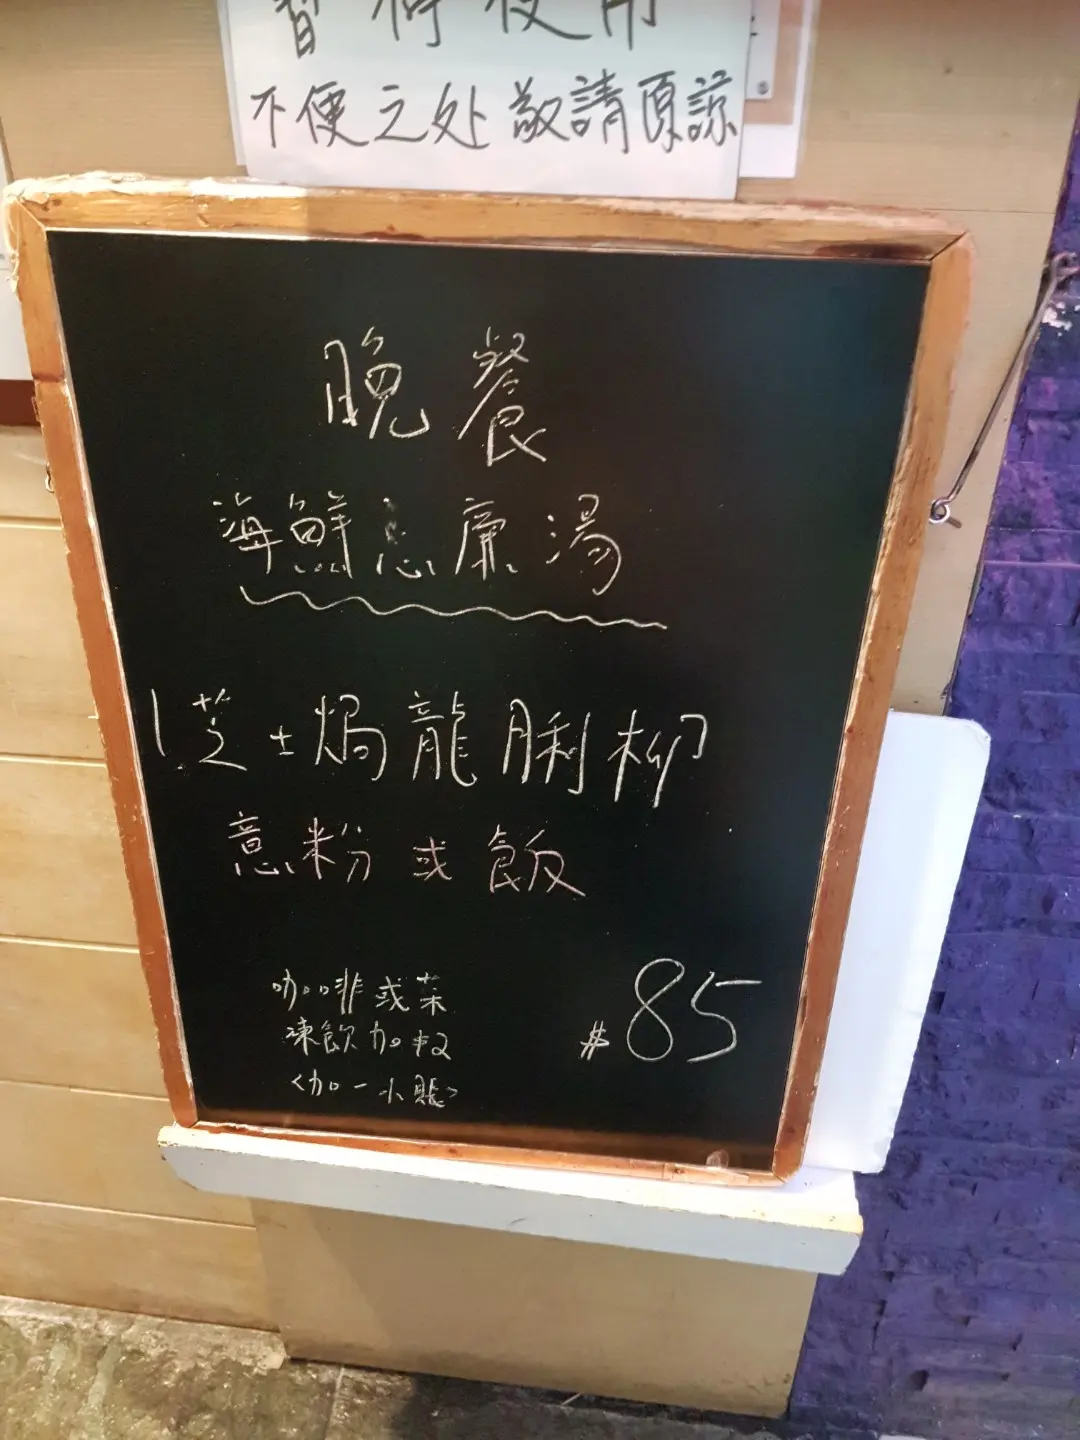 暫停使用
不便之处敬請原諒
晚餐
海鮮忌廉湯
1. 芝士焗龍脷柳
意粉或飯
咖啡或茶
凍飲加$2
<加一小賬>
$85